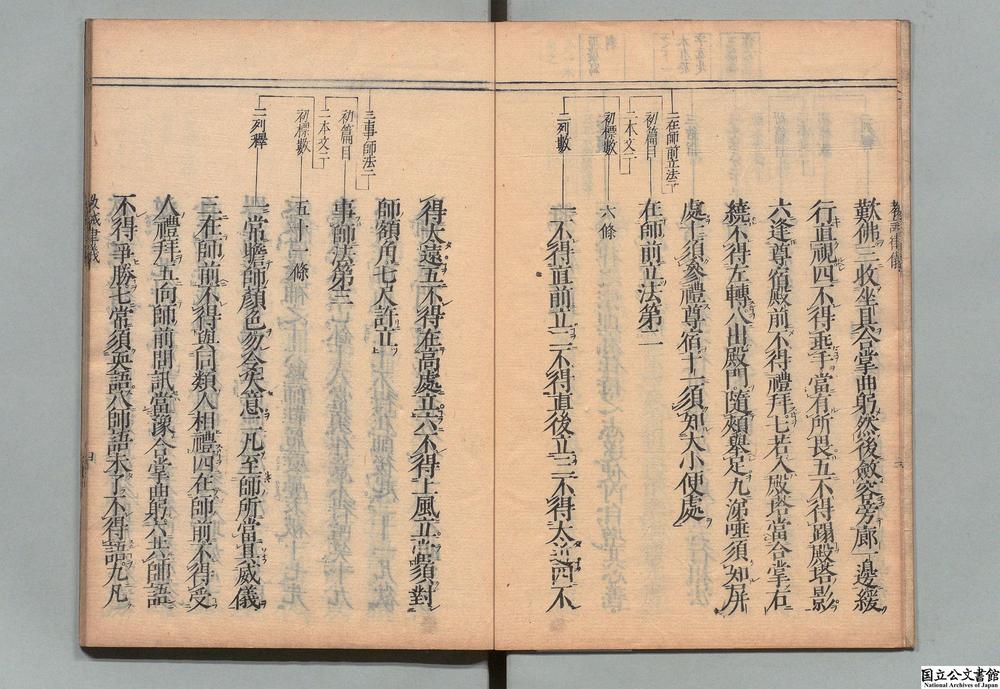 歎佛三收坐具合掌曲躬然後歛容旁廊一邊緩
行直視四不得垂手當有所畏五不得蹋殿塔影
六逢尊宿殿前不得禮拜七若入殿塔當合掌右
繞不得左轉八出殿門隨頰舉足九涕唾須知屏
處十須參禮尊宿十一須知大小便處
二在師前立法二
初篇目
二本文二
在師前立法第二
初標數
六條
二列數
一不得直前立二不得直後立三不得太近四不
得太遠五不得在高處立六不得上風立當須對
師額角七尺許立
三事師法二
初篇目
二本文二
事師法第三
初標數
五十一條
二列釋
一常瞻師顏色勿令失意二凡至師所當具威儀
三在師前不得與同類人相禮四在師前不得受
人禮拜五向師前問訊當潔合掌曲躬六共師語
不得爭勝七常須英語八師語未了不得語九凡
教誡律儀
国立公文書館
National Archives of Japan